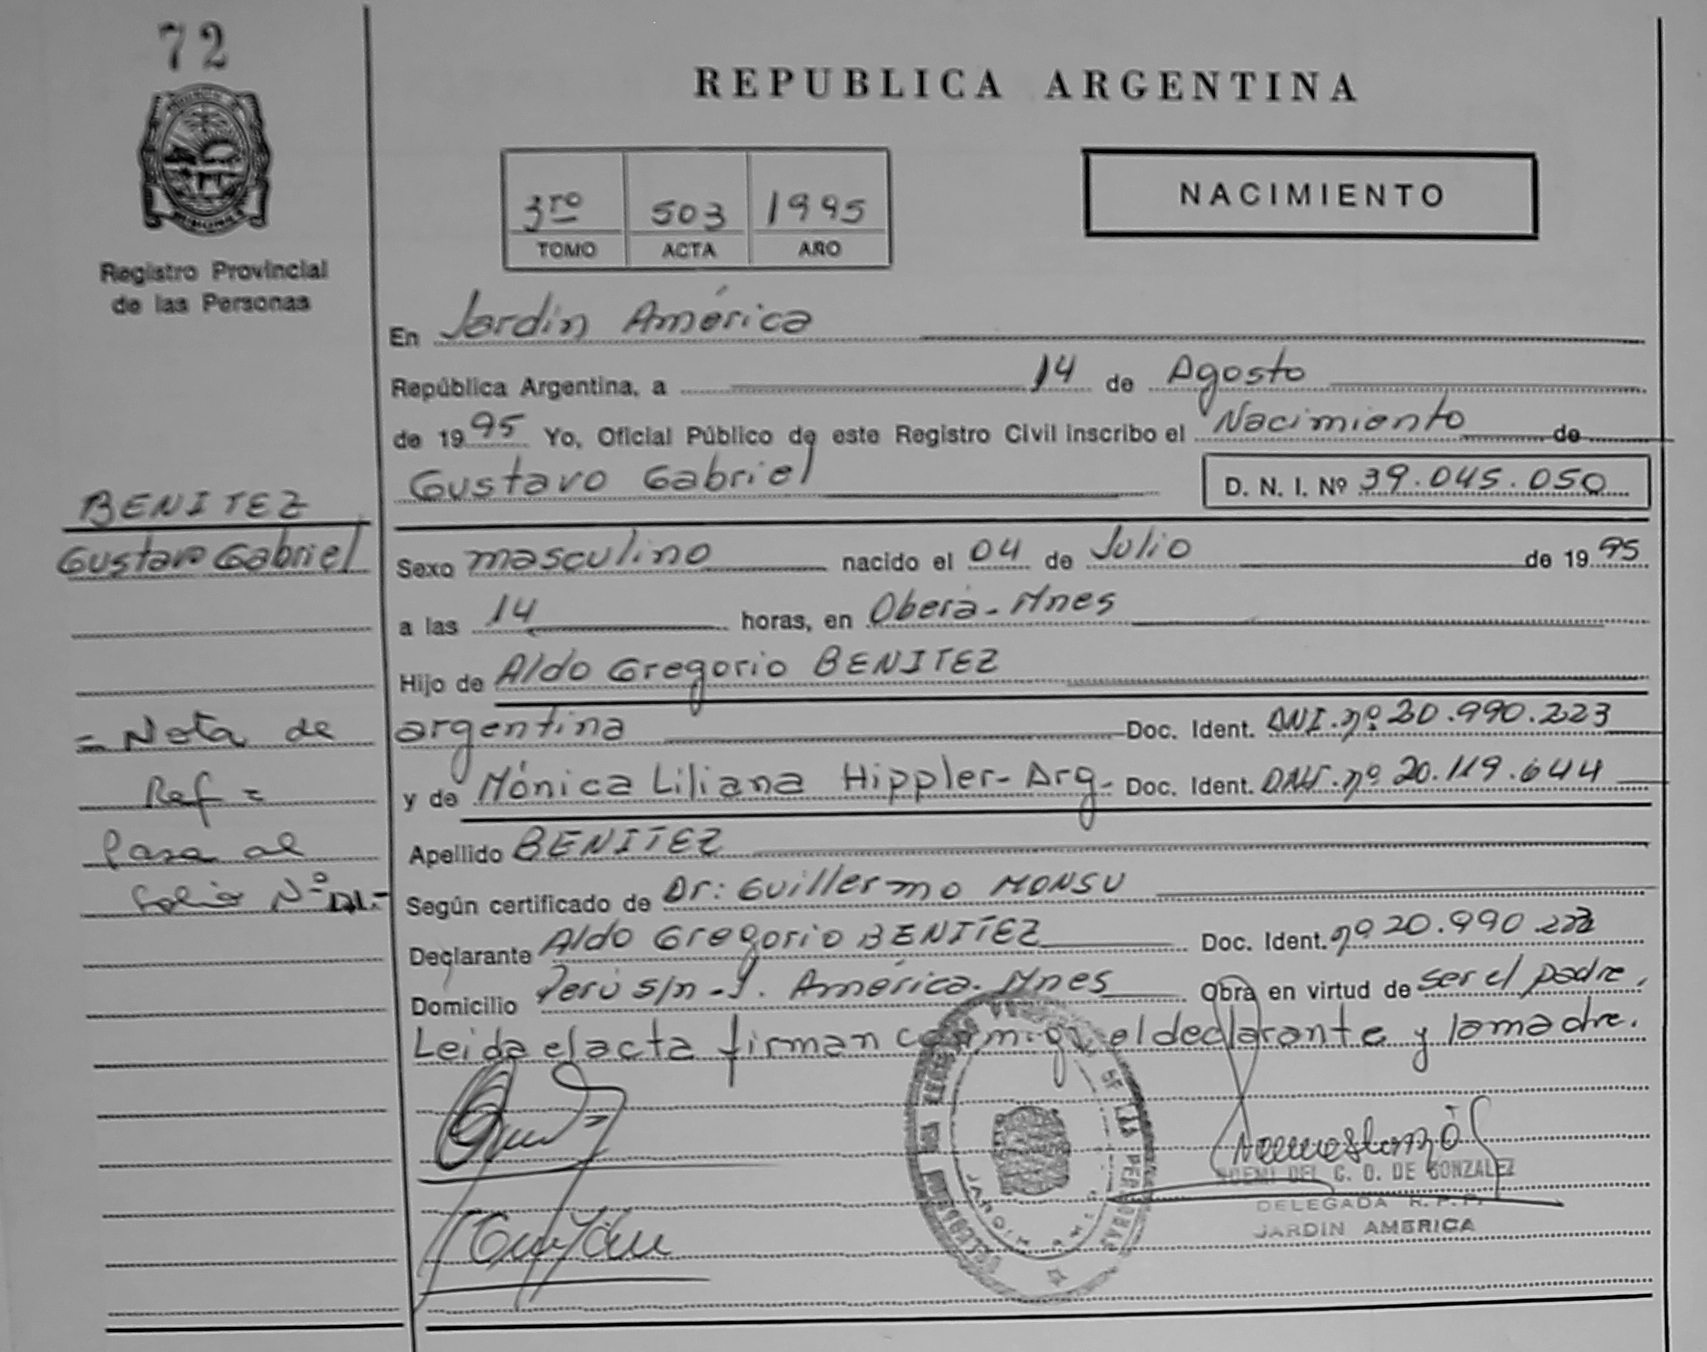 72
REPUBLICA ARGENTINA
3ro 503 1995
TOMO ACTA AÑO
NACIMIENTO
MISIONES
Registro Provincial
de las Personas
En Jardin América
República Argentina, a 14 de Agosto
de 1995 Yo, Oficial Público de este Registro Civil inscribo el Nacimiento de
Gustavo Gabriel D. N. I. Nº 39.045.050
BENITEZ
Gustavo Gabriel
Sexo masculino nacido el 04 de Julio de 1995
a las 14 horas, en Oberá-Mnes
Hijo de Aldo Gregorio BENITEZ
argentina Doc. Ident. DNI.nº 20.990.223
y de Mónica Liliana Hippler-Arg- Doc. Ident. DNI.nº 20.119.644
Apellido BENITEZ
Según certificado de Dr: Guillermo MONSU
Declarante Aldo Gregorio BENITEZ Doc. Ident. nº 20.990.223
Domicilio Perú s/n-J. América-Mnes Obra en virtud de ser el padre,
Leida el acta firman conmigo el declarante y la madre.
= Nota de
Ref =
Pasa al
folio Nº
NOEMI DEL C. O. DE GONZALEZ
DELEGADA R.P.P.
JARDIN AMERICA